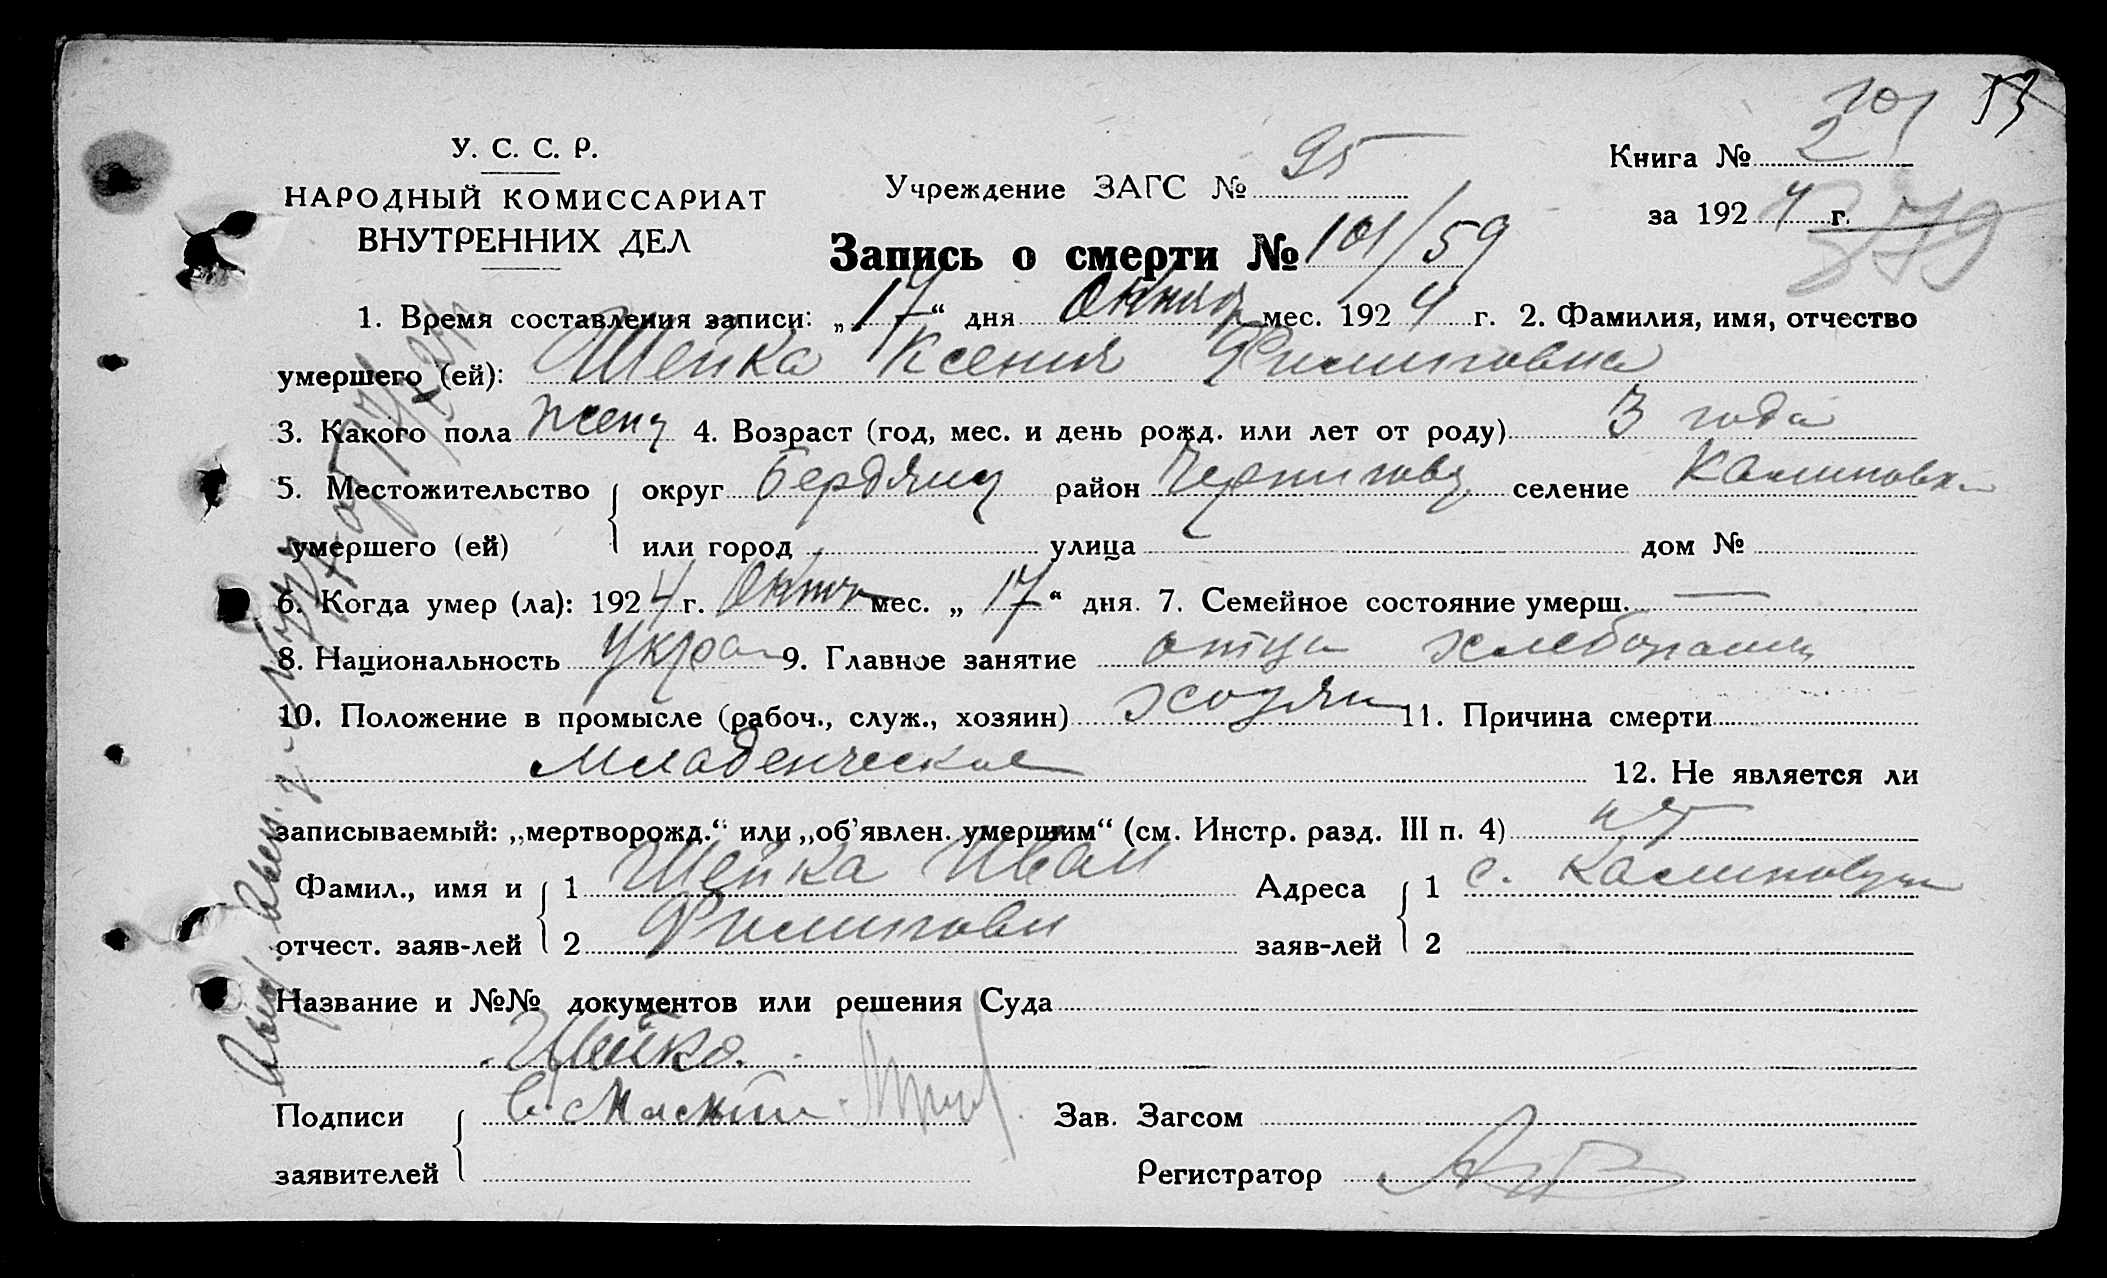 101 53
У. С. С. Р.
НАРОДНЫЙ КОМИССАРИАТ
ВНУТРЕННИХ ДЕЛ
Учреждение ЗАГС № 95
Книга № 2
за 1924 г.
379
Запись о смерти № 101/59
1. Время составления записи: „17“ дня Октяб мес. 1924 г. 2. Фамилия, имя, отчество
умершего (ей): Шейка Ксения Филиповна
3. Какого пола женс 4. Возраст (год, мес. и день рожд. или лет от роду) 3 года
5. Местожительство округ Бердянс район Черниговс селение Калиновка
умершего (ей) или город улица дом №
6. Когда умер (ла): 1924 г. Октяб мес. „17“ дня. 7. Семейное состояние умерш. —
8. Национальность Украи 9. Главное занятие отца хлебопашец
10. Положение в промысле (рабоч., служ., хозяин) хозяин 11. Причина смерти
младенческая 12. Не является ли
записываемый: „мертворожд.“ или „об'явлен. умершим“ (см. Инстр. разд. III п. 4) нет
Фамил., имя и 1 Шейка Иван Адреса 1 с. Калиновка
отчест. заяв-лей 2 Филипови заяв-лей 2
Название и №№ документов или решения Суда
Шейка
Подписи Зав. Загсом
заявителей Регистратор